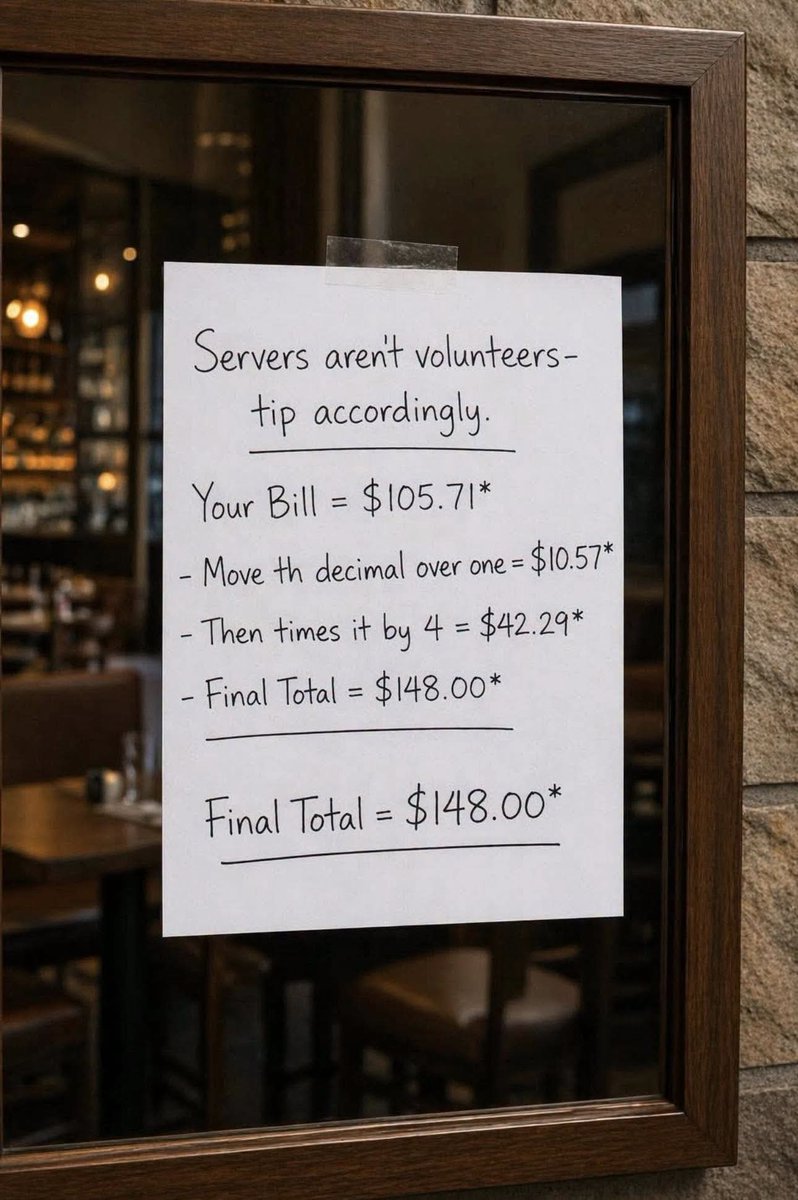 Servers aren't volunteers-
tip accordingly.
Your Bill = $105.71*
- Move th decimal over one = $10.57*
- Then times it by 4 = $42.29*
- Final Total = $148.00*
Final Total = $148.00*